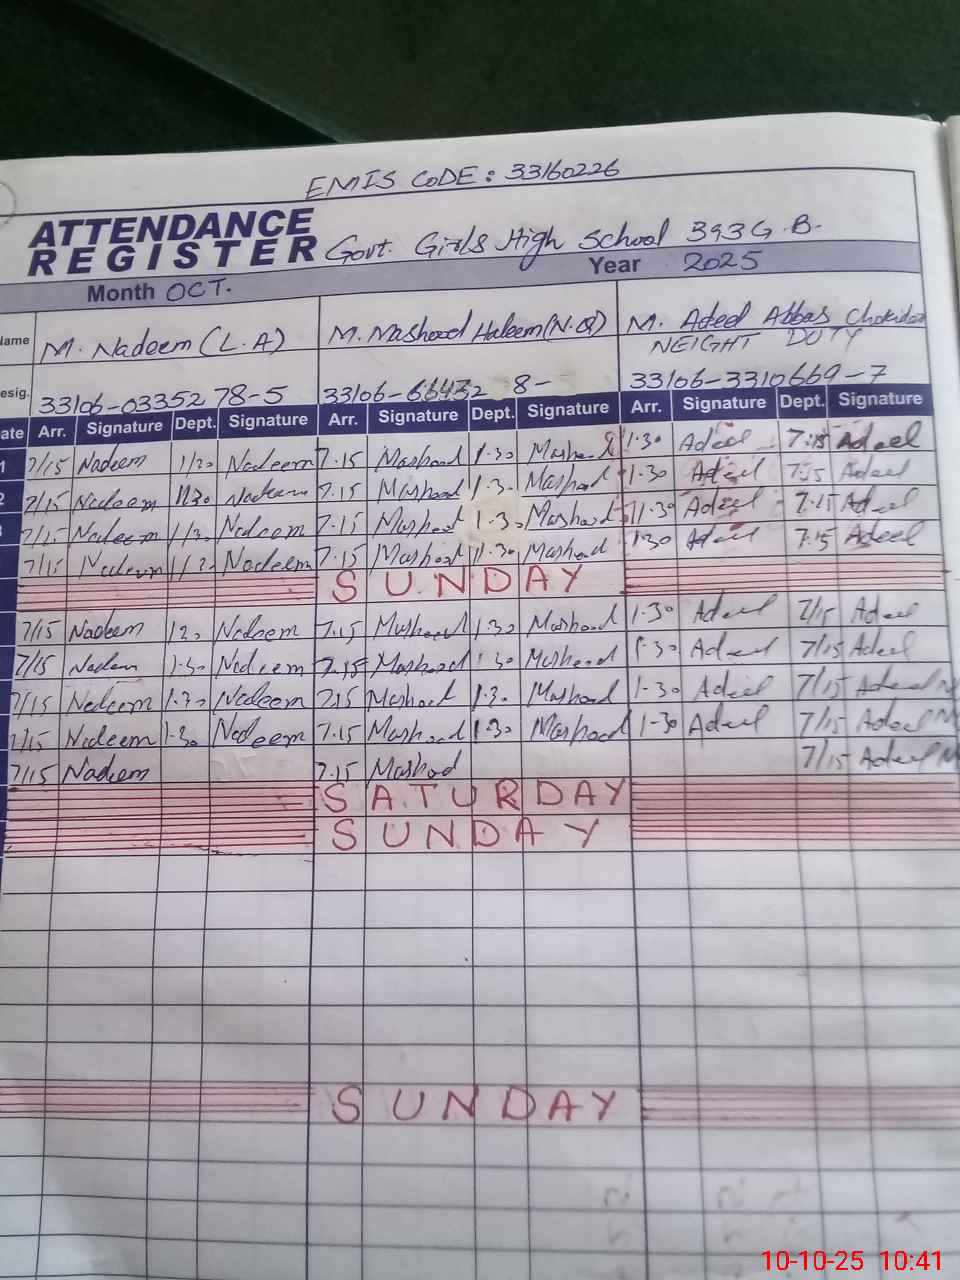 EMIS CODE: 33160226
ATTENDANCE
REGISTER Govt. Girls High School 393 G.B.
Month OCT. Year 2025
Name M. Nadeem (L.A) M. Mashood Haleem (N.Q) M. Adeel Abbas Chokidar
NEIGHT DUTY
Desig. 33106-0335278-5 33106- 8- 33106-3310669-7
Date Arr. Signature Dept. Signature Arr. Signature Dept. Signature Arr. Signature Dept. Signature
1 7/15 Nadeem 1/30 Nadeem 7.15 Mashood 1.30 Mashood 1.30 Adeel 7.15 Adeel
2 7/15 Nadeem 1/30 Nadeem 7.15 Mashood 1.30 Mashood 1.30 Adeel 7.15 Adeel
7/15 Nadeem 1/30 Nadeem 7.15 Mashood 1.30 Mashood 1.30 Adeel 7.15 Adeel
7/15 Nadeem Nadeem 7.15 Mashood 1.30 Mashood 1.30 Adeel 7.15 Adeel
SUNDAY
7/15 Nadeem Nadeem 7.15 Mashood 1.30 Mashood 1.30 Adeel 7/15 Adeel
7/15 Nadeem 1.30 Nadeem 7.15 Mashood 1.30 Mashood 1.30 Adeel 7/15 Adeel
7/15 Nadeem 1.30 Nadeem 7.15 Mashood 1.30 Mashood 1.30 Adeel 7/15 Adeel
7/15 Nadeem 1.30 Nadeem 7.15 Mashood 1.30 Mashood 1.30 Adeel 7/15 Adeel
7/15 Nadeem 7.15 Mashood 7/15 Adeel
SATURDAY
SUNDAY
SUNDAY
10-10-25 10:41